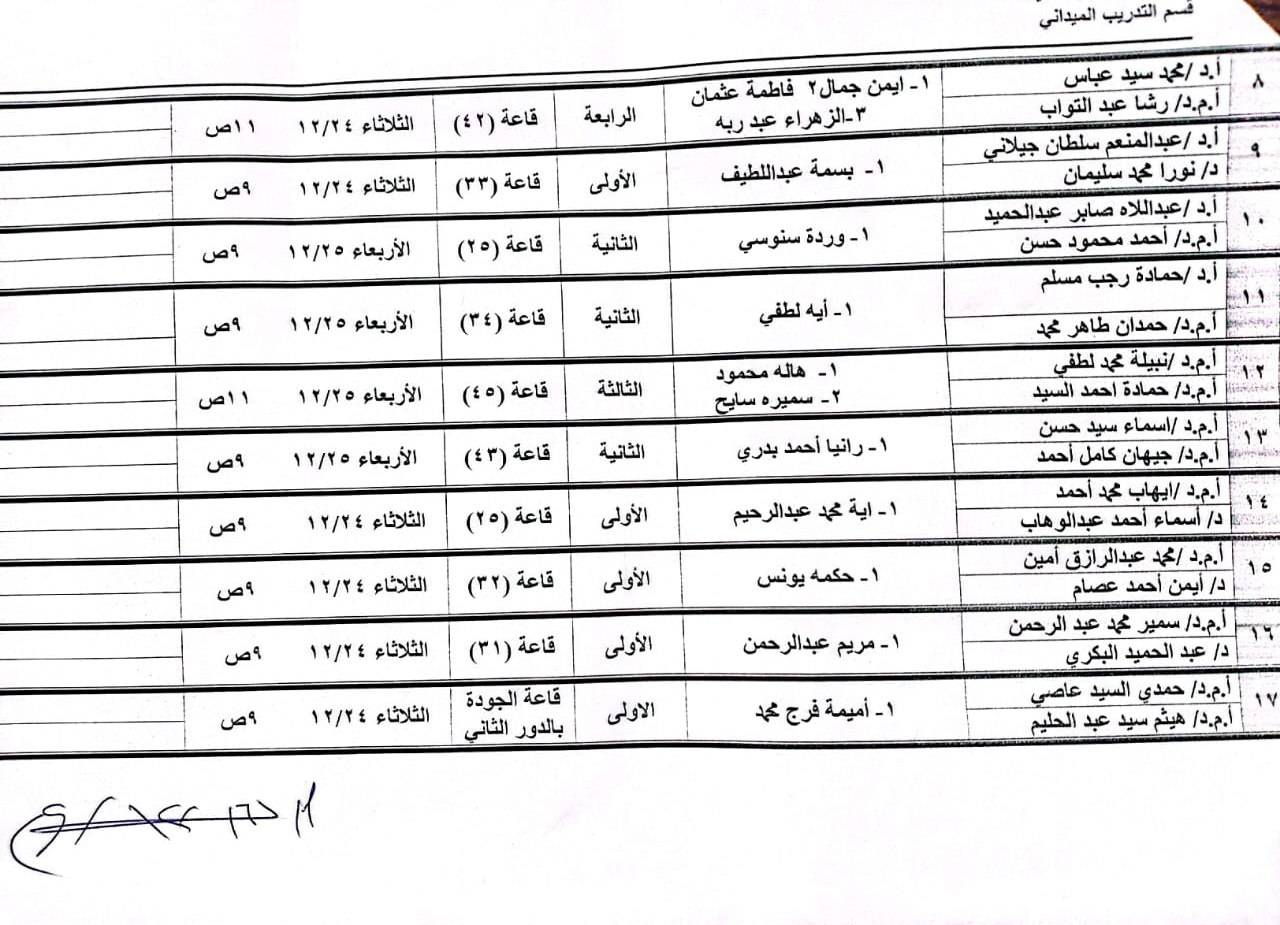 قسم التدريب الميداني
٨ أ.د /محمد سيد عباس ١- ايمن جمال٢ فاطمة عثمان الرابعة قاعة (٤٢) الثلاثاء ١٢/٢٤ ١١ص
أ.م.د/ رشا عبد التواب ٣-الزهراء عبد ربه
٩ أ.د /عبدالمنعم سلطان جيلاني ١- بسمة عبداللطيف الأولى قاعة (٣٣) الثلاثاء ١٢/٢٤ ٩ص
د/ نورا محمد سليمان
١٠ أ.د /عبداللاه صابر عبدالحميد ١- وردة سنوسي الثانية قاعة (٢٥) الأربعاء ١٢/٢٥ ٩ص
أ.م.د/ أحمد محمود حسن
١١ أ.د /حمادة رجب مسلم ١- أيه لطفي الثانية قاعة (٣٤) الأربعاء ١٢/٢٥ ٩ص
أ.م.د/ حمدان طاهر محمد
١٢ أ.م.د /نبيلة محمد لطفي ١- هاله محمود الثالثة قاعة (٤٥) الأربعاء ١٢/٢٥ ١١ص
أ.م.د/ حمادة احمد السيد ٢- سميره سايح
١٣ أ.م.د /اسماء سيد حسن ١- رانيا أحمد بدري الثانية قاعة (٤٣) الأربعاء ١٢/٢٥ ٩ص
أ.م.د/ جيهان كامل أحمد
١٤ أ.م.د /ايهاب محمد أحمد ١- اية محمد عبدالرحيم الأولى قاعة (٢٥) الثلاثاء ١٢/٢٤ ٩ص
د/ أسماء أحمد عبدالوهاب
١٥ أ.م.د /محمد عبدالرازق أمين ١- حكمه يونس الأولى قاعة (٣٢) الثلاثاء ١٢/٢٤ ٩ص
د/ أيمن أحمد عصام
١٦ أ.م.د/ سمير محمد عبد الرحمن ١- مريم عبدالرحمن الأولى قاعة (٣١) الثلاثاء ١٢/٢٤ ٩ص
د/ عبد الحميد البكري
١٧ أ.م.د/ حمدي السيد عاصي ١- أميمة فرج محمد الاولى قاعة الجودة الثلاثاء ١٢/٢٤ ٩ص
أ.م.د/ هيثم سيد عبد الحليم بالدور الثاني